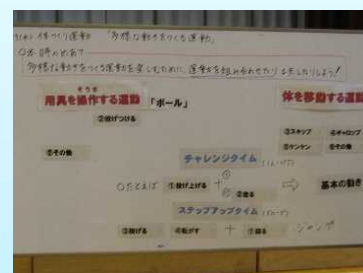 体つくり運動 「多様な動きをつくる運動」
○本時のめあて
多様な動きをつくる運動を楽しむために、運動を組み合わせたり工夫したりしよう!
そうさ
用具を操作する運動 「ボール」
体を移動する運動
②投げつける
③スキップ ④ギャロップ
⑤その他
⑤ケンケン ⑥その他
チャレンジタイム
○たとえば ①投げ上げる + ②走る ⇨ 基本の動き
ステップアップタイム
③投げる ④転がす +